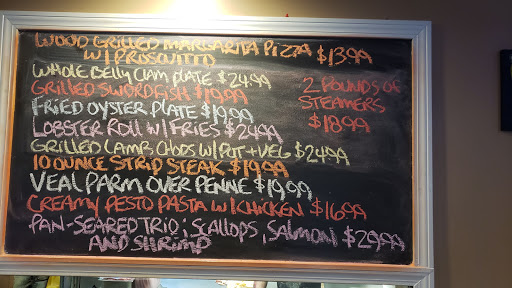 WOOD GRILLED MARGARITA PIZZA $13.99
W/ PROSCUITTO
WHOLE BELLY CLAM PLATE $24.99
GRILLED SWORDFISH $19.99
FRIED OYSTER PLATE $19.99
LOBSTER ROLL W/ FRIES $24.99
GRILLED LAMB CHOPS W/ POT + VEG $24.99
10 OUNCE STRIP STEAK $19.99
VEAL PARM OVER PENNE $19.99
CREAMY PESTO PASTA W/ CHICKEN $16.99
PAN-SEARED TRIO, SCALLOPS, SALMON $29.99
AND SHRIMP
2 POUNDS OF
STEAMERS
$18.99